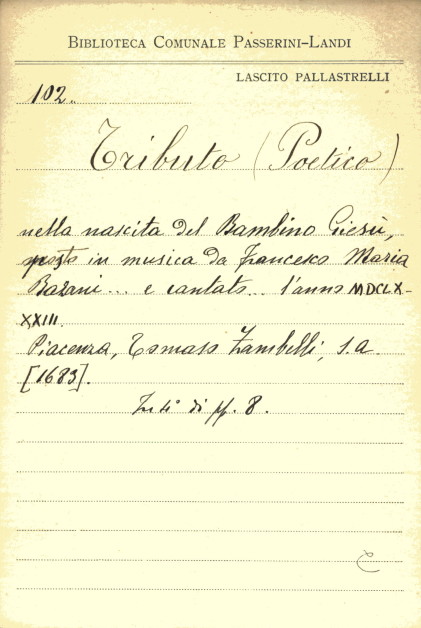 BIBLIOTECA COMUNALE PASSERINI-LANDI
LASCITO PALLASTRELLI
102.
Tributo (Poetico)
nella nascita del Bambino Giesù,
posto in musica da Francesco Maria
Bazani... e cantato.. l'anno MDCLX-
XXIII.
Piacenza, Tomaso Zambelli, s.a.
[1683].
In 4° di pp. 8.